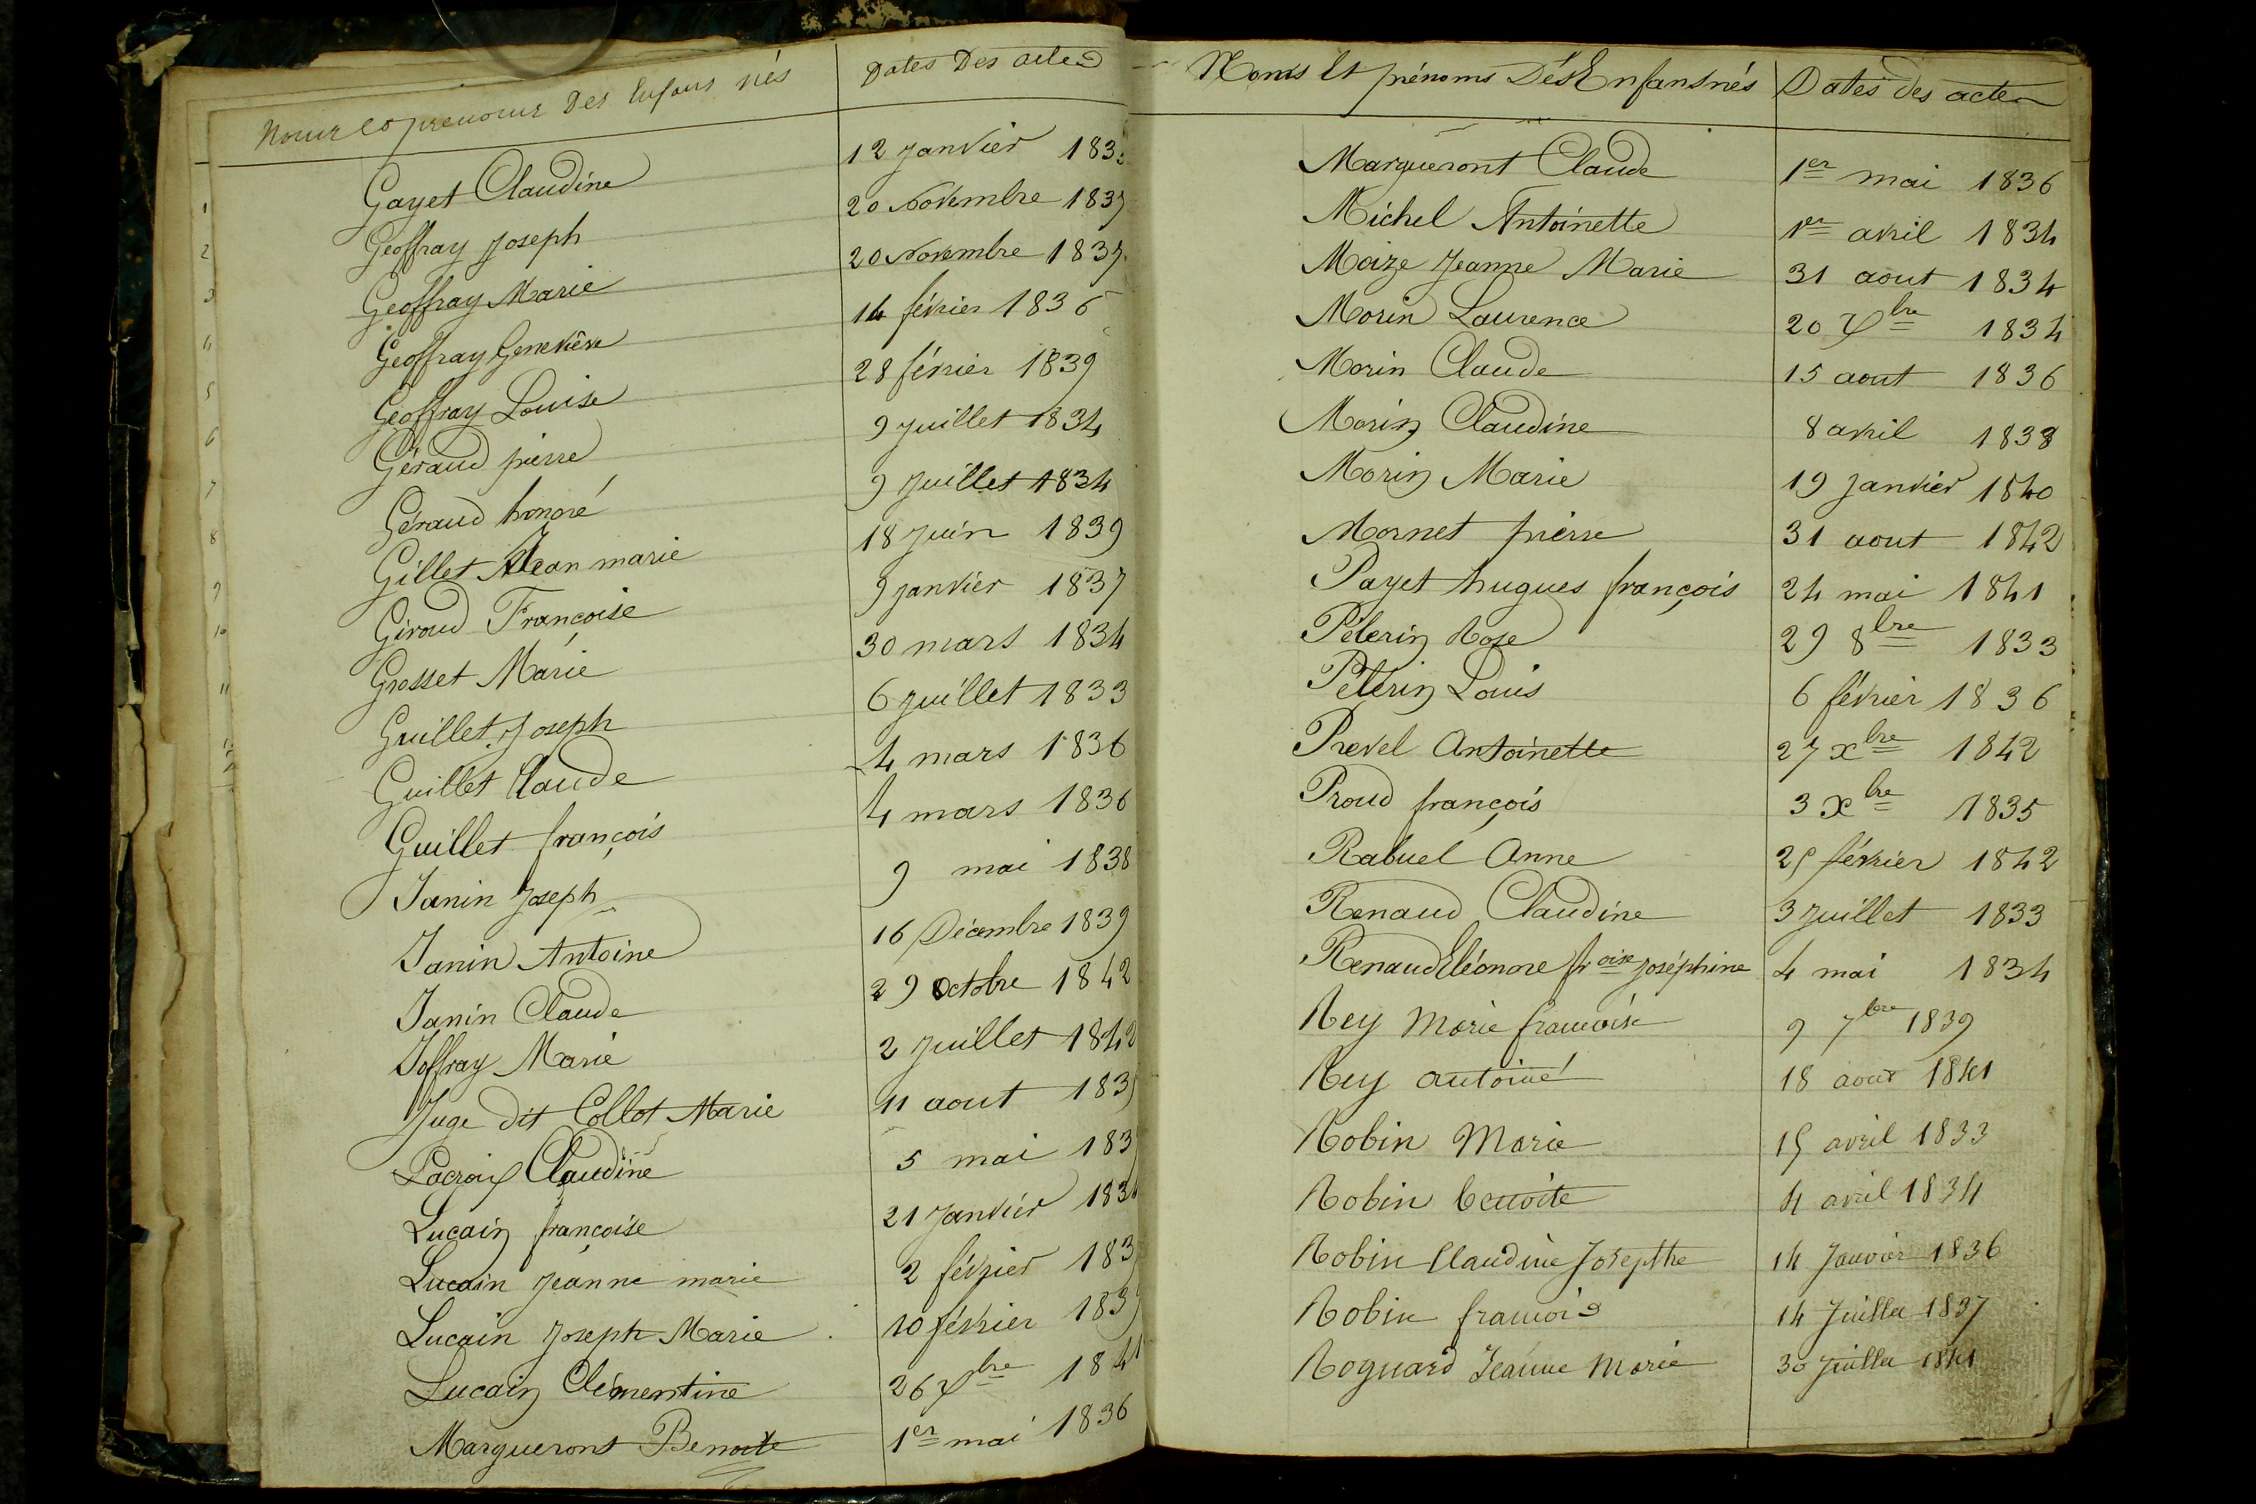 Noms et prenoms Des Enfans nés Dates Des actes
Gayet Claudine 12 janvier
Geoffray Joseph 20 Novembre
Geoffray Marie 20 Novembre
Geoffray Genevieve 14 février 1836
Geoffray Louise 28 février 1839
Géraud pierre 9 juillet 1834
Géraud honoré 9 juillet 1834
Gillet Jean marie 18 juin 1839
Giroud Françoise 9 janvier 1837
Grosset Marie 30 mars 1834
Guillet Joseph 6 juillet 1833
Guillet Claude 4 mars 1836
Guillet françois 4 mars 1836
Janin Joseph 9 mai 1838
Janin Antoine 16 Décembre 1839
Janin Claude 29 octobre 1842
Joffray Marie 2 juillet 1842
Juge dit Collot Marie 11 aout
Lacroix Claudine 5 mai
Lucain françoise 21 janvier
Lucain Jeanne marie 2 février
Lucain Joseph Marie 10 février
Lucain Clémentine 26 7bre 1841
Margueront Benoite 1er mai 1836
1
2
3
4
5
6
7
8
9
10
11
Noms Et prénoms Dés Enfans nés Dates des actes
Margueront Claude 1er mai 1836
Michel Antoinette 1er avril 1834
Moize Jeanne Marie 31 aout 1834
Morin Laurence 20 7bre 1834
Morin Claude 15 aout 1836
Morin Claudine 8 avril 1838
Morin Marie 19 janvier 1840
Mornet pierre 31 aout 1842
Payet hugues françois 24 mai 1841
Pélerin Rose 29 8bre 1833
Pélerin Louis 6 février 1836
Prevel Antoinette 27 xbre 1842
Proud françois 3 xbre 1835
Rabuel Anne 25 février 1842
Renaud Claudine 3 juillet 1833
Renaud Eléonore froise joséphine 4 mai 1834
Rey Marie francoise 9 7bre 1839
Rey antoine 18 aout 1841
Robin Marie 15 avril 1833
Robin benoite 4 avril 1834
Robin Claudine Josepthe 14 Janvier 1836
Robin francois 14 Juillet 1837
Roguard Jeanne Marie 30 Juillet 1841